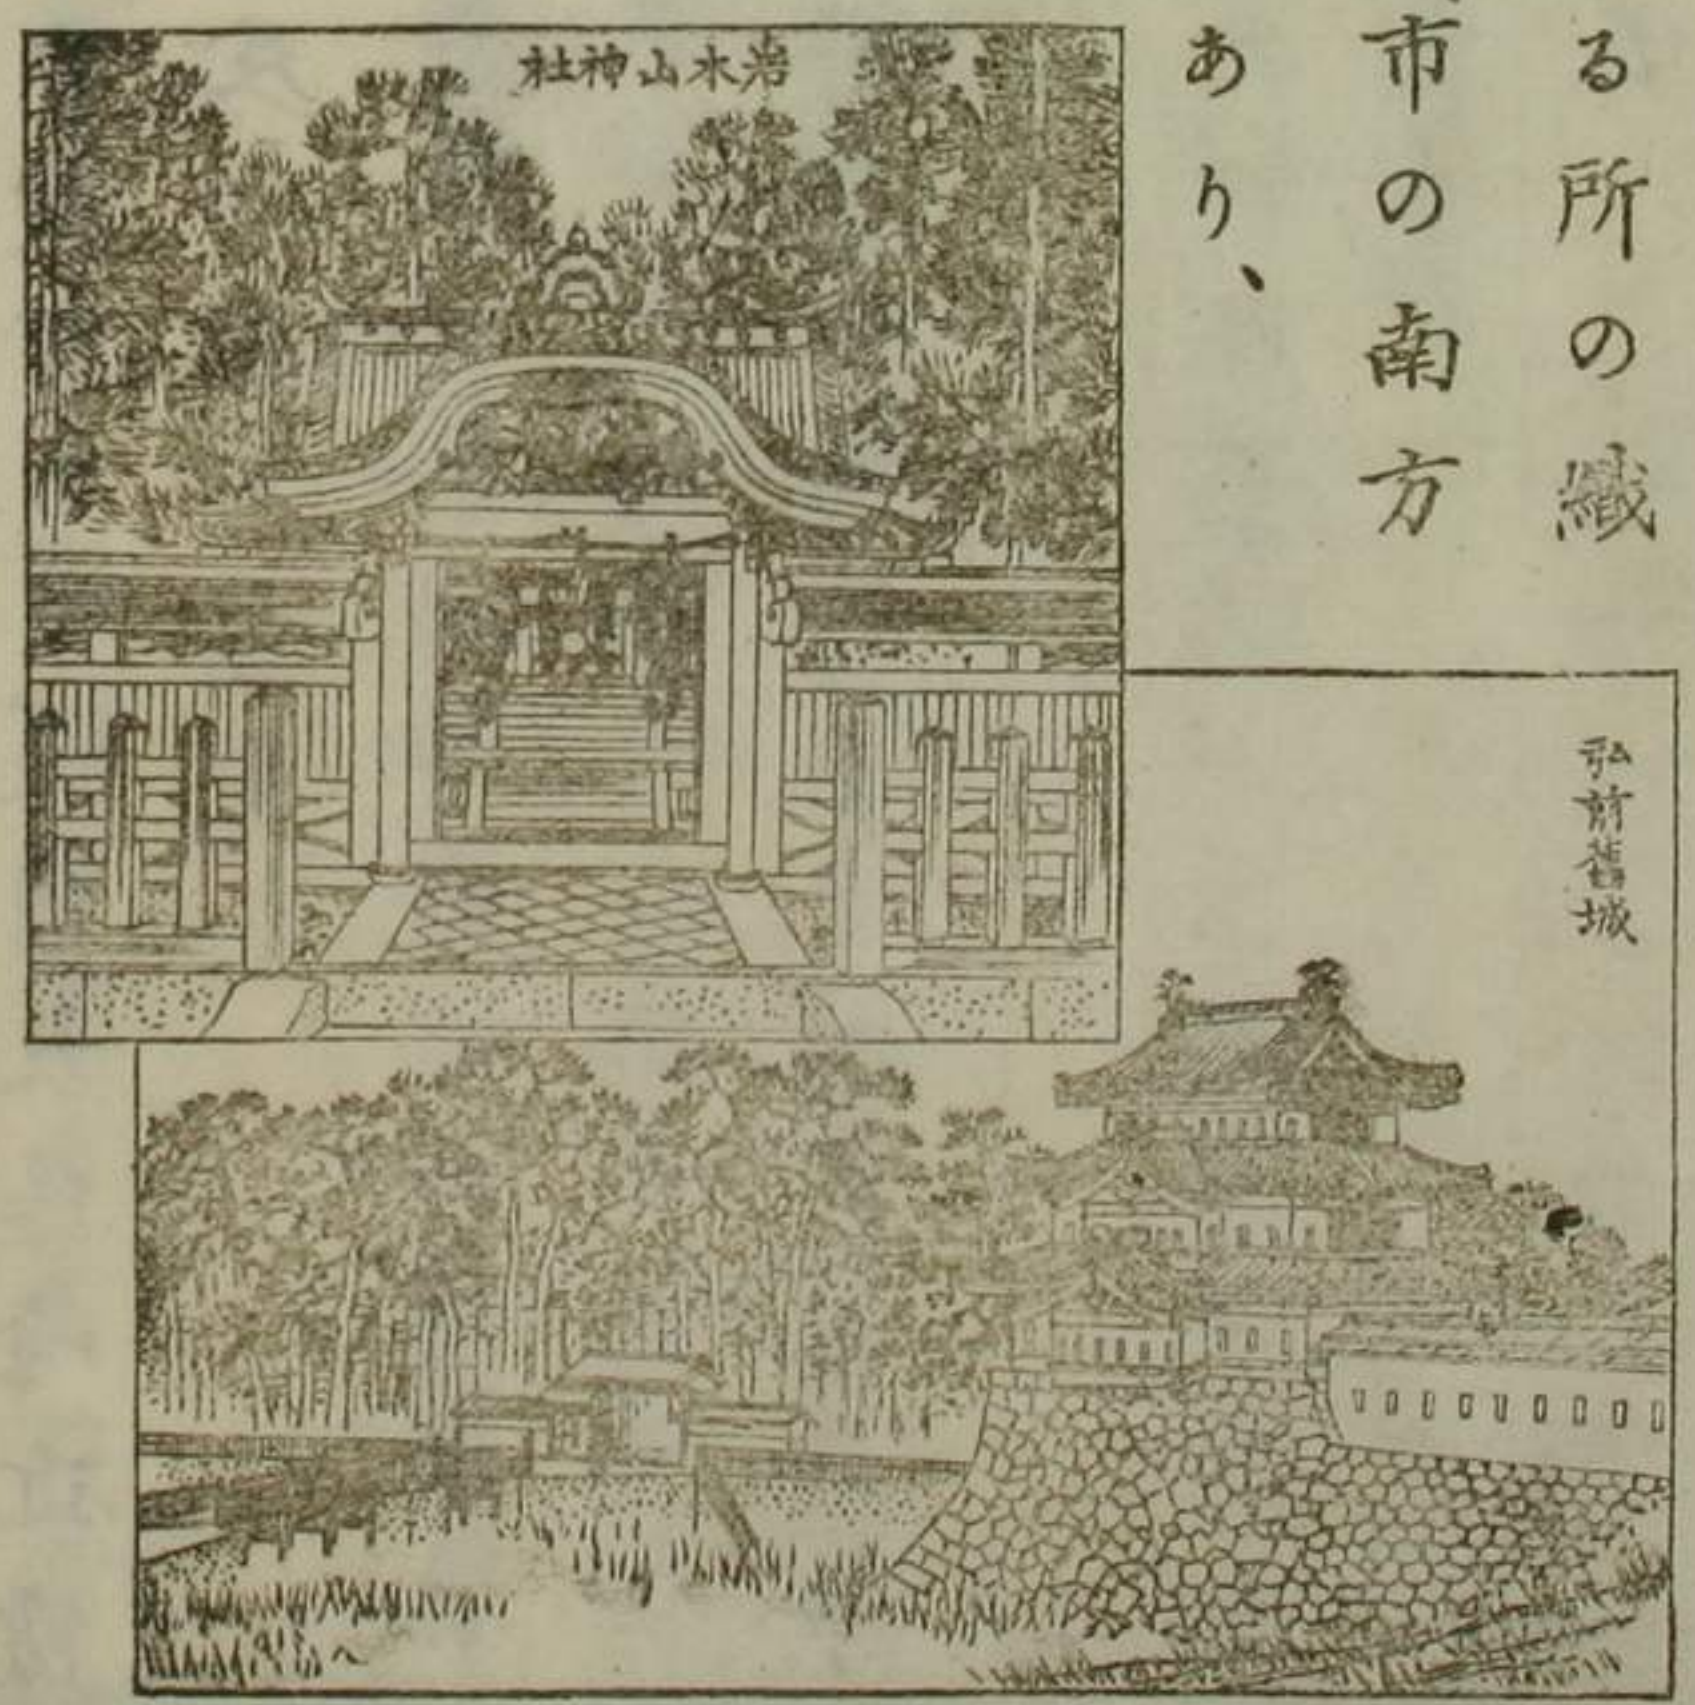 る所の織
市の南方
あり、
岩木山神社
弘前舊城